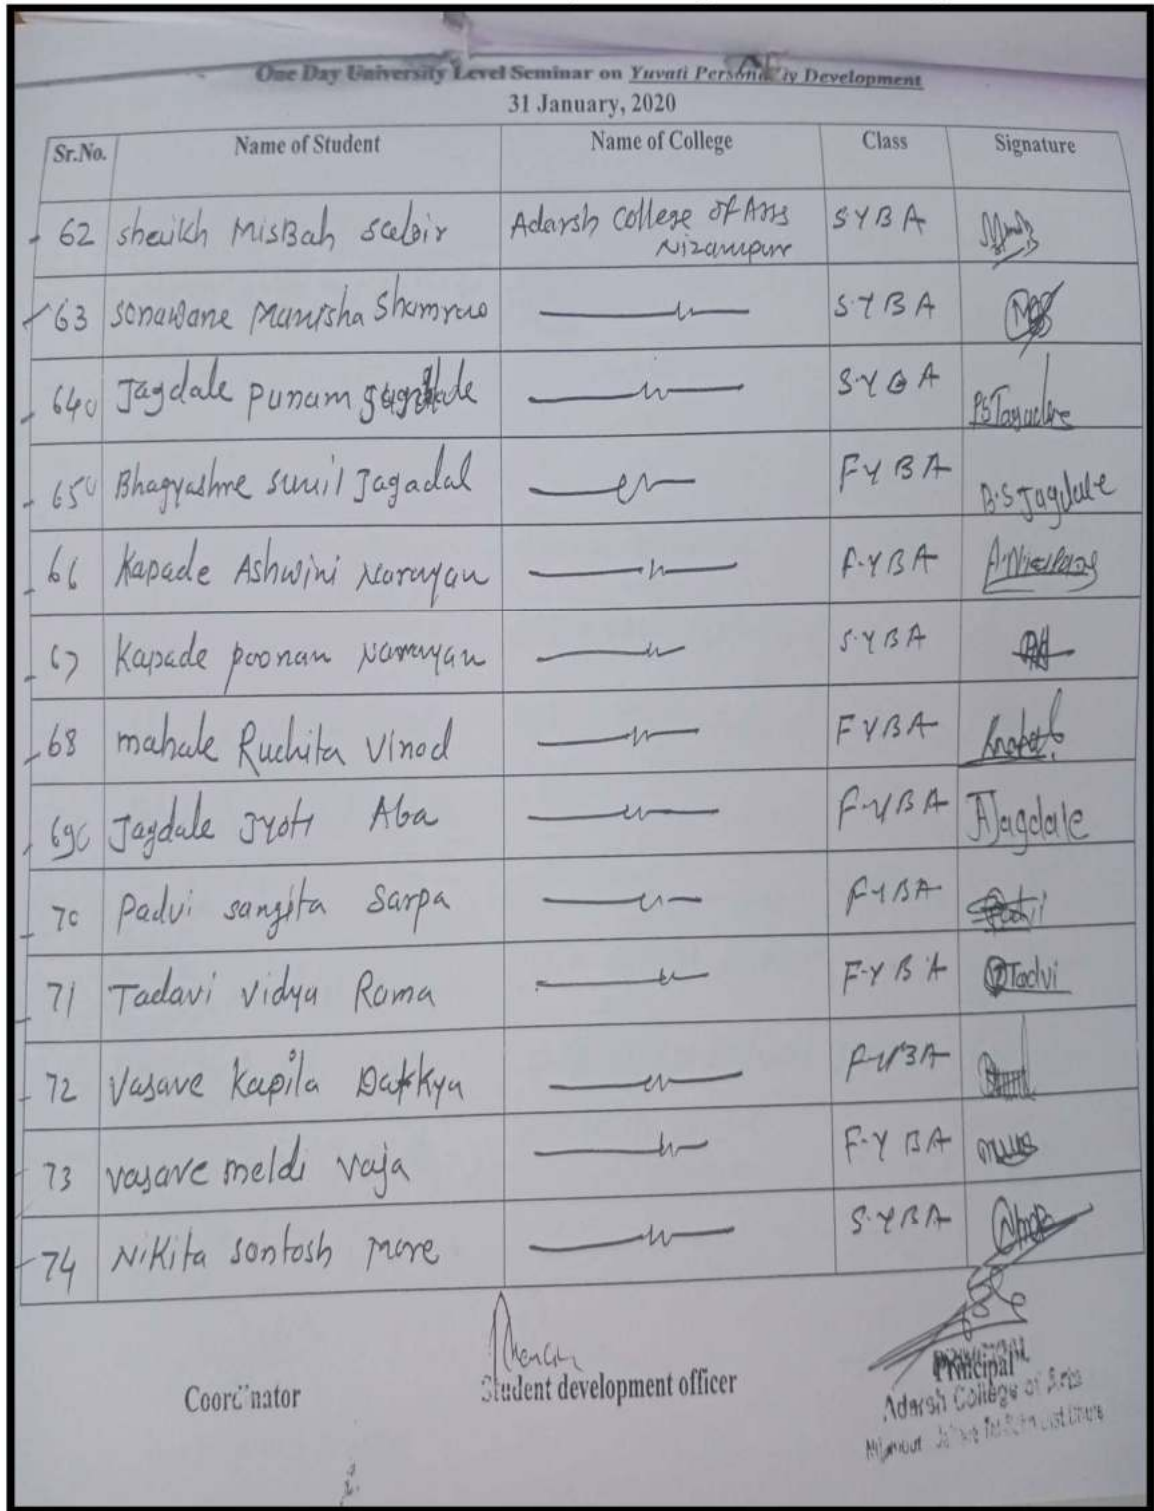 One Day University Level Seminar on Yuvati Personality Development
31 January, 2020
Sr.No. Name of Student Name of College Class Signature
62 sheikh MisBah Sabir Adarsh College of Arts SYBA
Nizampur
63 sonawane Manisha Shamrao S.Y.B.A
64 Jagdale punam S.Y.B.A
65 Bhagyashree sunil Jagadal F Y B A B.S Jagdale
66 Kapade Ashwini Narayan F.Y.B.A
67 Kapade poonam Narayan S.Y.B.A
68 mahale Ruchita Vinod F Y B A
69 Jagdale Jyoti Aba F.Y.B.A Jagdale
70 Padvi sangita Sarpa F.Y.B.A
71 Tadavi vidya Rama F.Y.B.A Tadvi
72 Vasave Kapila F.Y.B.A
73 vasave meldi vaja F.Y.B.A
74 NiKita santosh more S.Y.B.A
Coordinator Student development officer Principal
Adarsh College of Arts